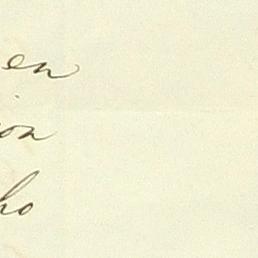 en
ion
ho